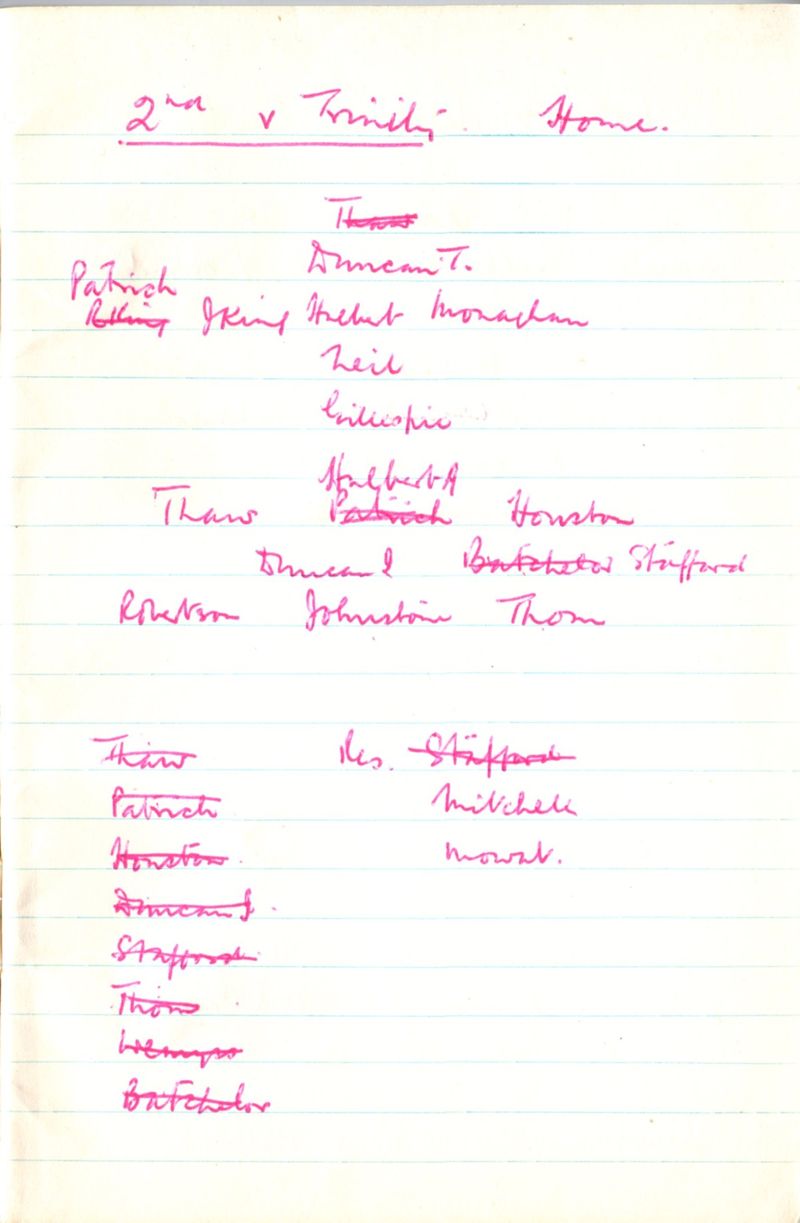 2nd v Trinity. Home.
Thaw
Duncan T.
Patrick
R King J King Halbert Monaghan
Neil
Gillespie
Halbert A
Thaw Patrick Houston
Duncan I Batchelor Stafford
Robertson Johnstone Thom
Thaw Res. Stafford
Patrick Mitchell
Houston. Mowat.
Duncan I.
Stafford
Thom
Wemyss
Batchelor